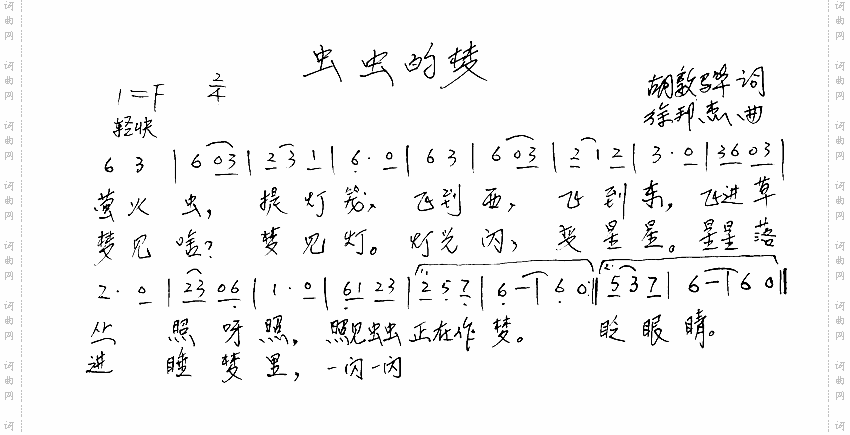 虫虫的梦
1=F 2/4
胡敦骅 词
轻快
徐邦杰 曲
6 3 | 6 03 | 2 3 1 | 6· 0 | 6 3 | 6 03 | 2 1 2 | 3· 0 | 36 03 |
萤火虫，提灯笼，飞到西，飞到东，飞进草
梦见啥？梦见灯。灯光闪，变星星。星星落
2· 0 | 23 06 | 1· 0 | 61 23 | 1. 2 5 7 | 6 — | 6 0 :|| 2. 5 3 7 | 6 — | 6 0 ||
丛照呀照，照见虫虫正在作梦。眨眼睛。
进睡梦里，一闪一闪
词曲网
词曲网
词曲网
词曲网
词曲网
词曲网
词曲网
词曲网
词曲网
词曲网
词曲网
词曲网
词曲网
词曲网